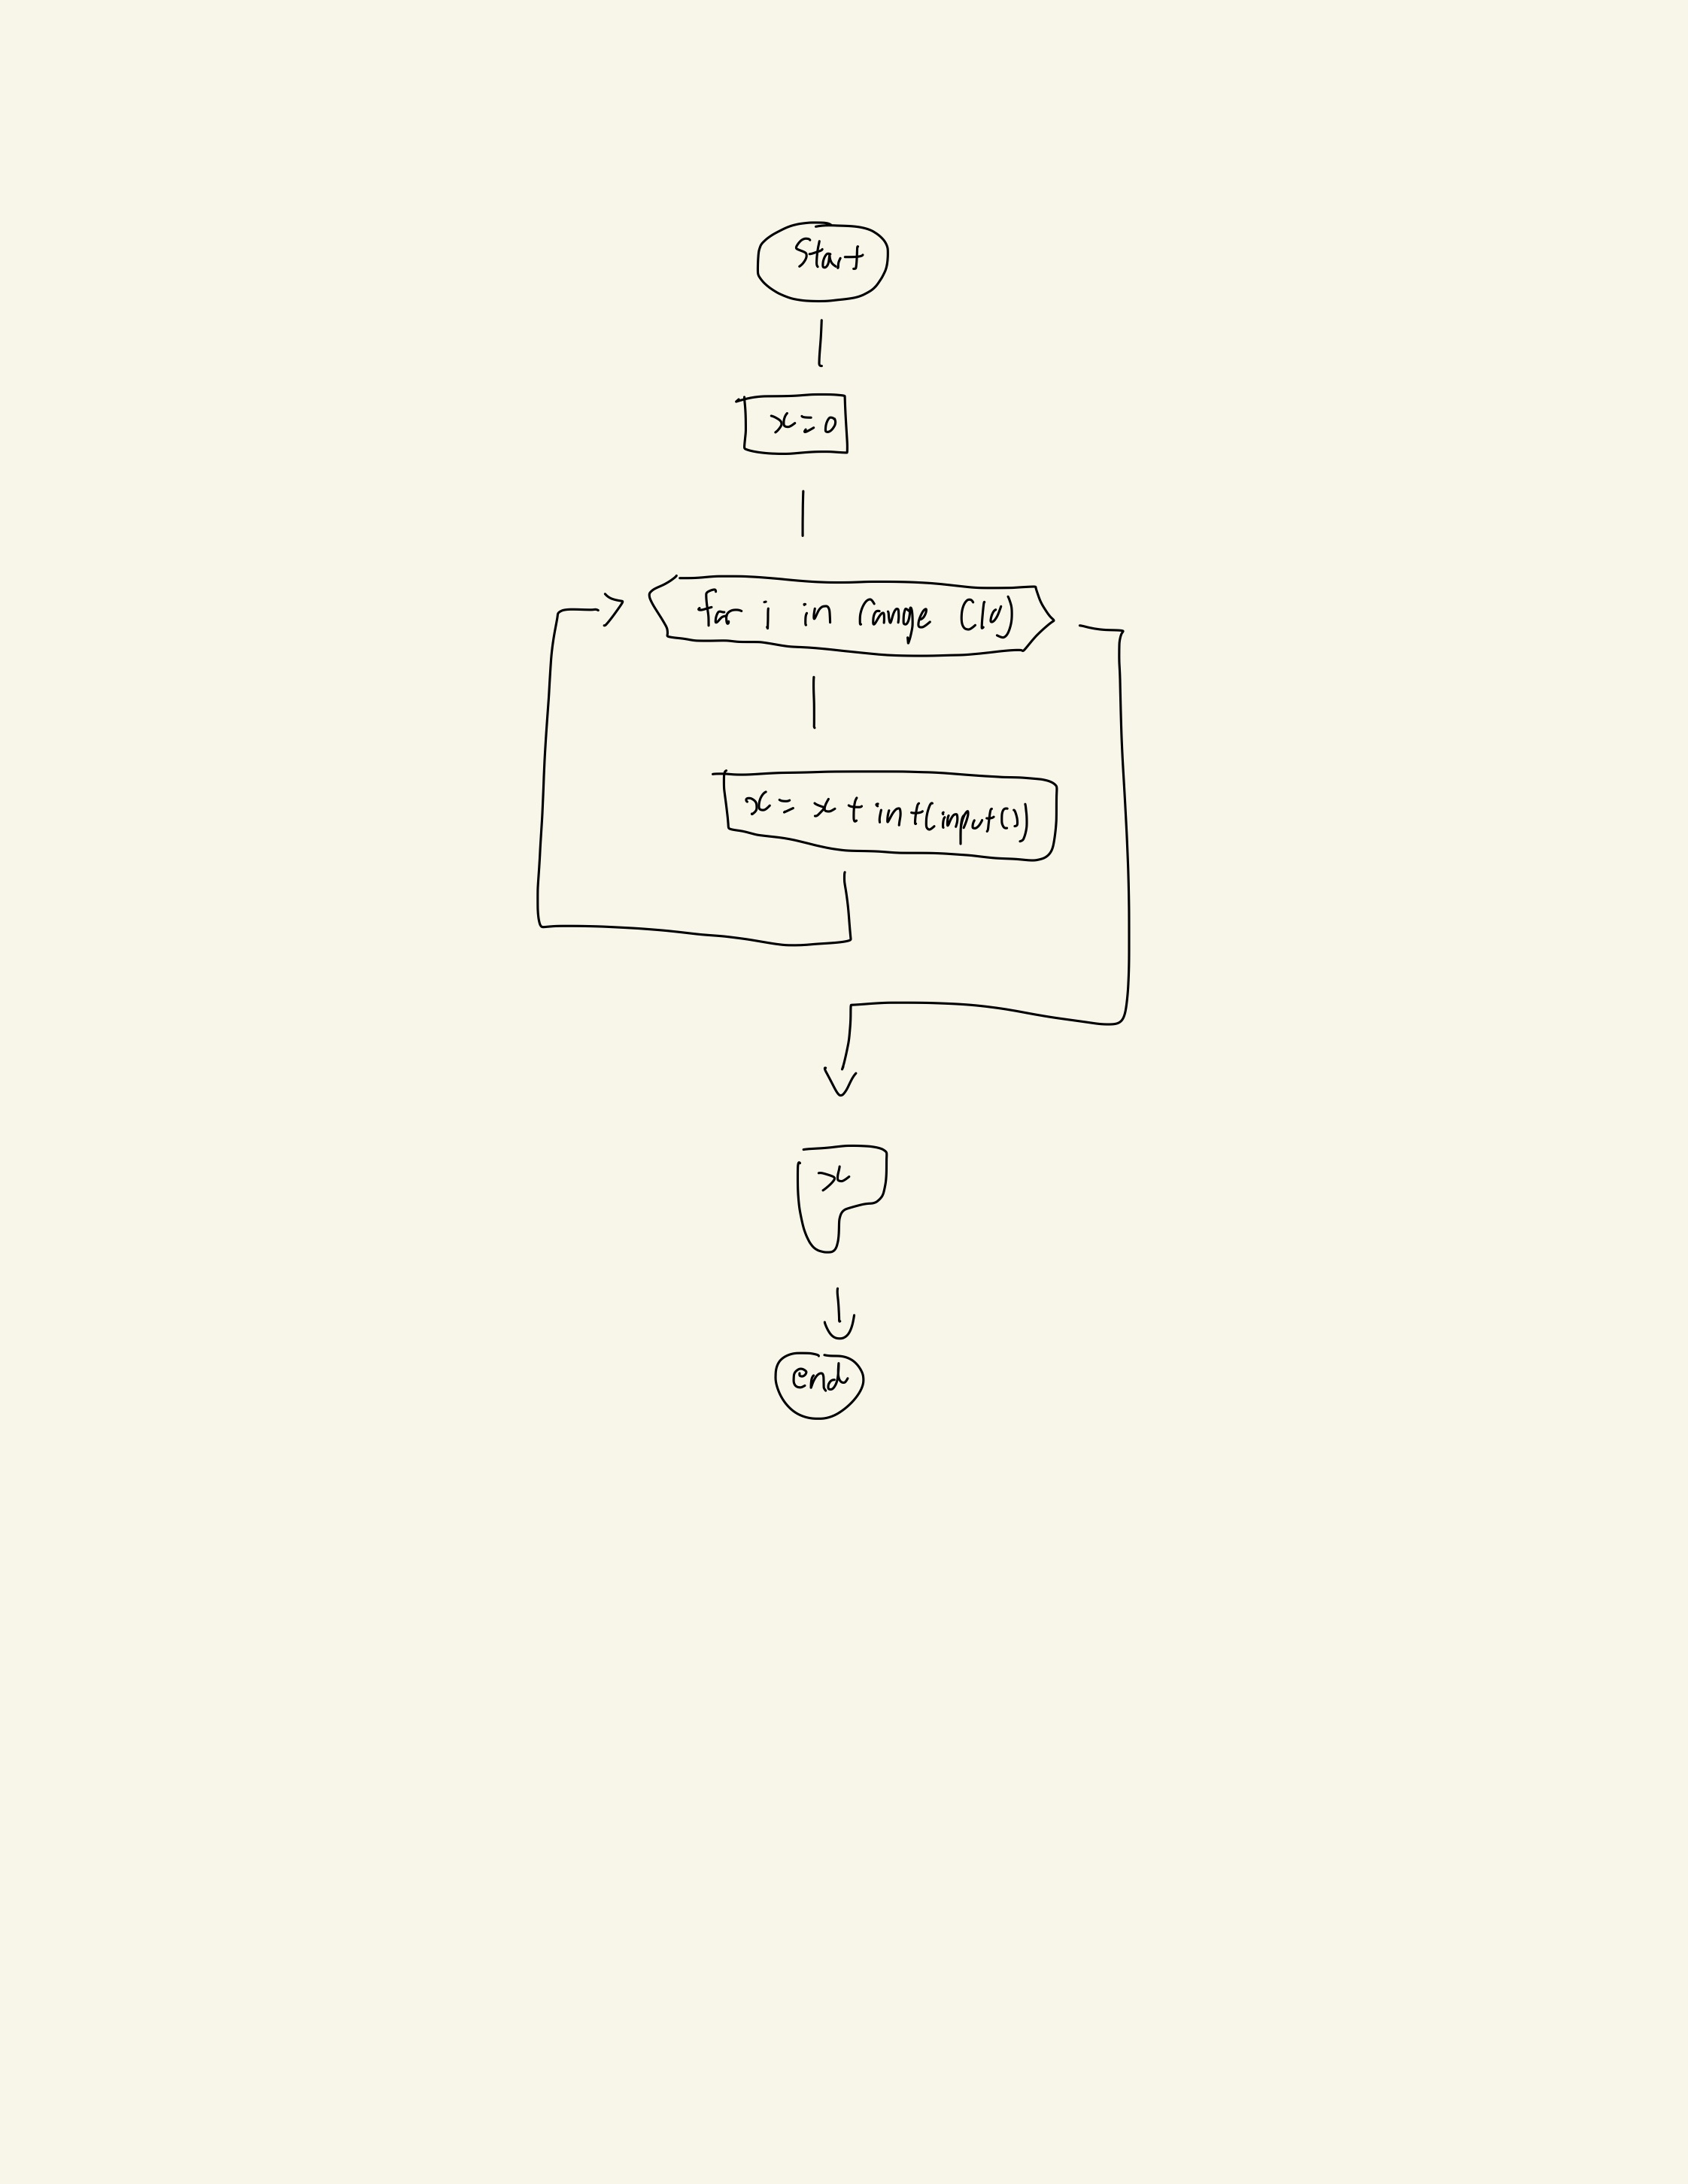 Start
x=0
for i in range (10)
x= x + int(input())
x
end